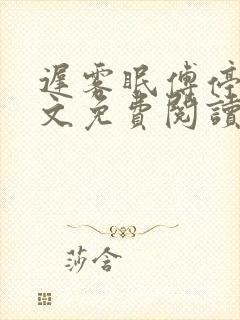 遲雾眠傅停
文免費閱讀
莎含